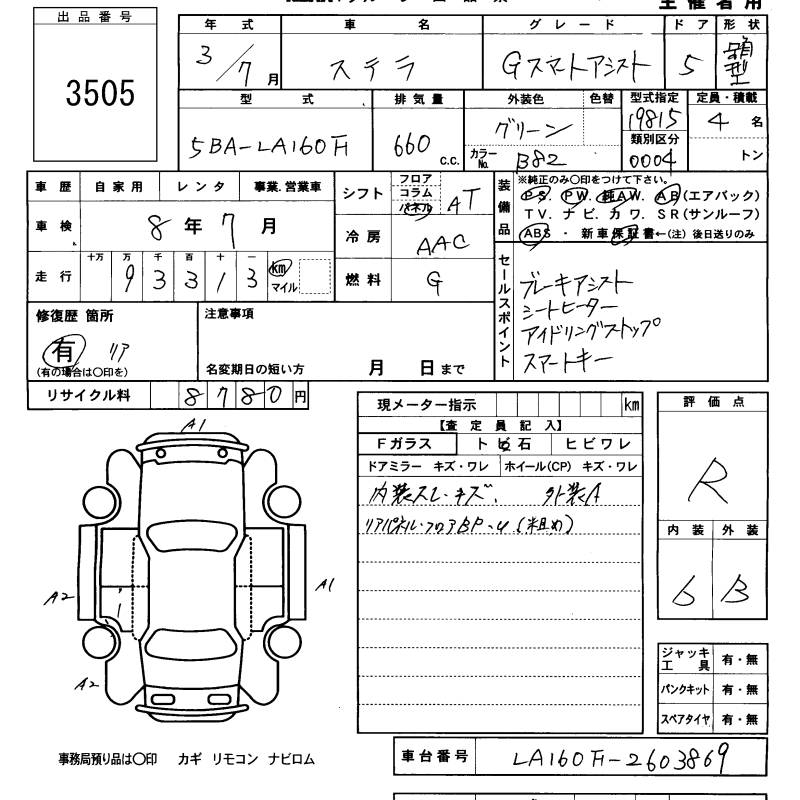 主催者用
出品番号
3505
年式 車名 グレード ドア 形状
3/7月 ステラ Gスマートアシスト 5 箱型
型式 排気量 外装色 色替 型式指定 定員・積載
5BA-LA160F 660 c.c. グリーン 19815 4名
類別区分
カラーNo. B82 0004 トン
車歴 自家用 レンタ 事業.営業車
車検 8年7月
走行 十万 万 千 百 十 一
93313 km マイル
シフト フロア コラム パネル AT
冷房 AAC
燃料 G
装備品 ※純正のみ○印をつけて下さい。
P.S. P.W. 純AW. A.B(エアバック)
T V. ナビ. カワ. S R(サンルーフ)
ABS ・ 新車保証書←(注) 後日送りのみ
セールスポイント
ブレーキアシスト
シートヒーター
アイドリングストップ
スマートキー
修復歴 箇所
有 リア
(有の場合は○印を)
注意事項
名変期日の短い方 月 日まで
リサイクル料 8780円
現メーター指示 km
【査定員記入】
Fガラス トビ石 ヒビワレ
ドアミラー キズ・ワレ ホイール(CP) キズ・ワレ
内装スレ・キズ、 外装A
リアパネル・フロアBP-U(米粗め)
評価点
R
内装 外装
6 B
ジャッキ工具 有・無
パンクキット 有・無
スペアタイヤ 有・無
A1
A2
A1
A2
事務局預り品は○印 カギ リモコン ナビロム
車台番号 LA160F-2603869